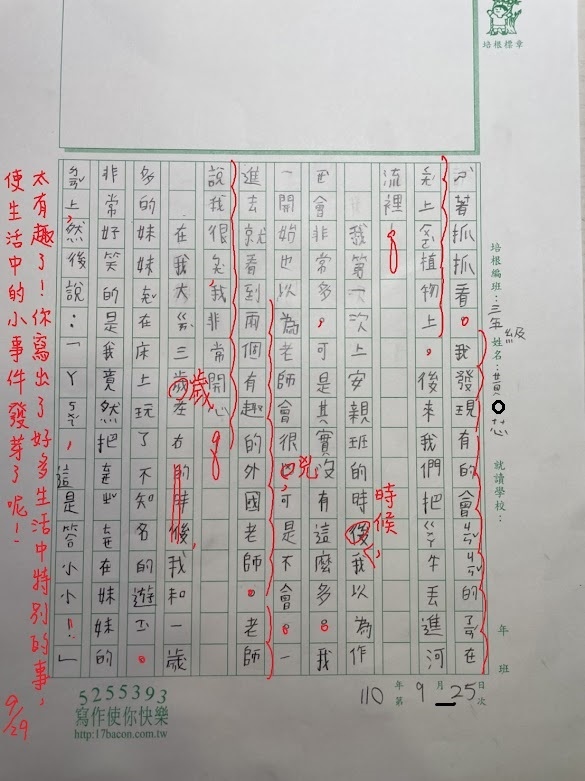 培根標章
培根編班：三年級 姓名：黃 芯 就讀學校： 年 班
ㄕˋ著抓抓看。我發現有的會ㄐㄧㄣˇㄐㄧㄣˇ的ㄍㄞˋ在
上植物上，後來我們把ㄍㄨㄚ牛丟進河
流裡。
我第一次上安親班的時後我以為作
也會非常多，可是其實沒有這麼多。我
一開始也以為老師會很凶，可是不會一
進去就看到兩個有趣的外國老師。老師
說我很，我非常開心。
在我大三歲左右的時後，我和一歲
多的妹妹在床上玩了不知名的遊ㄒㄧˋ。
非常好笑的是我竟然把在妹妹的
上，然後說：「ㄚ，這是答小小！」
時候
凶
歲
太有趣了！你寫出了好多生活中特別的事，
使生活中的小事件發芽了呢！
9/29
110 年第 9 月 25 日次
5255393
寫作使你快樂
http://17bacon.com.tw